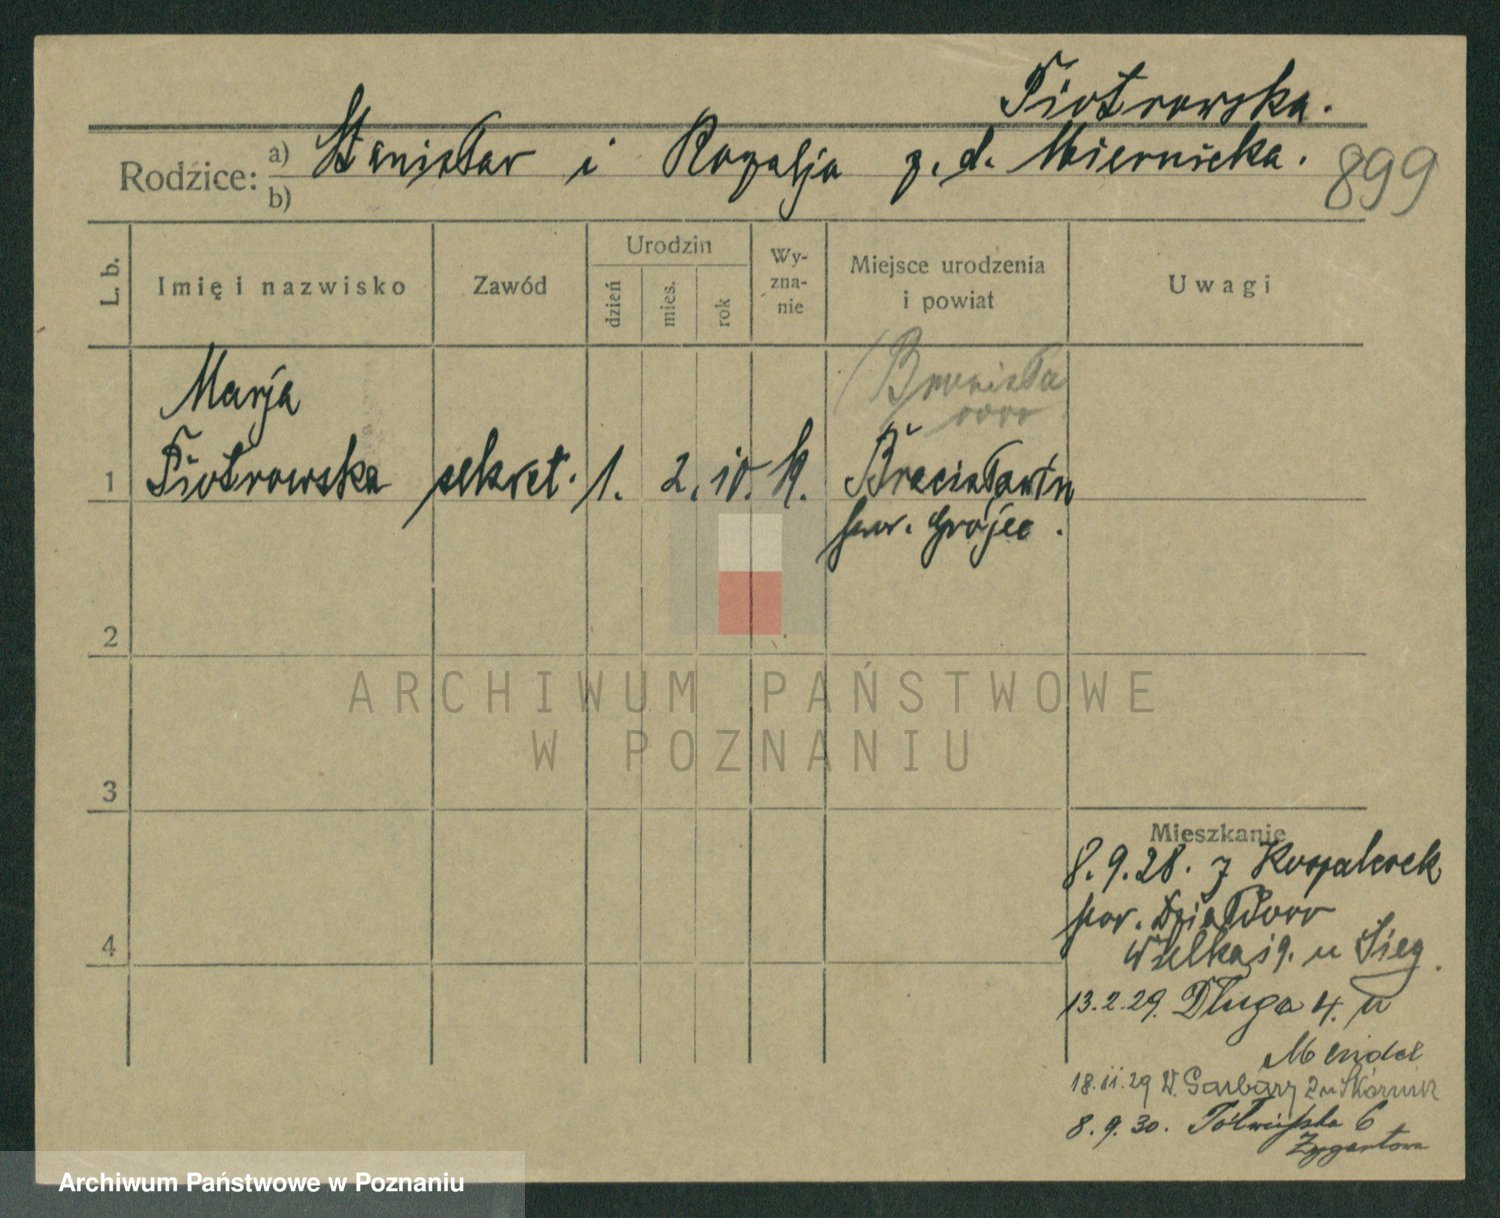 Piotrowska.
Rodzice: a) Stanisław i Rozalja z. d. Miernicka.
b)
899
L. b.
Imię i nazwisko
Zawód
Urodzin
dzień
mies.
rok
Wy-
zna-
nie
Miejsce urodzenia
i powiat
Uwagi
(Bronisła
wow
Marja
1 Piotrowska sekret. 1. 2. 10. k.
pow. Grójec.
2
ARCHIWUM PAŃSTWOWE
W POZNANIU
3
Mieszkanie
8.9.28. z
pow. Działdowo
4
Wielka 19. u Sieg.
13.2.29. Długa 4. u
Mendel
18.11.29 W. Garbary u
8.9.30. Półwiejska 6
Archiwum Państwowe w Poznaniu